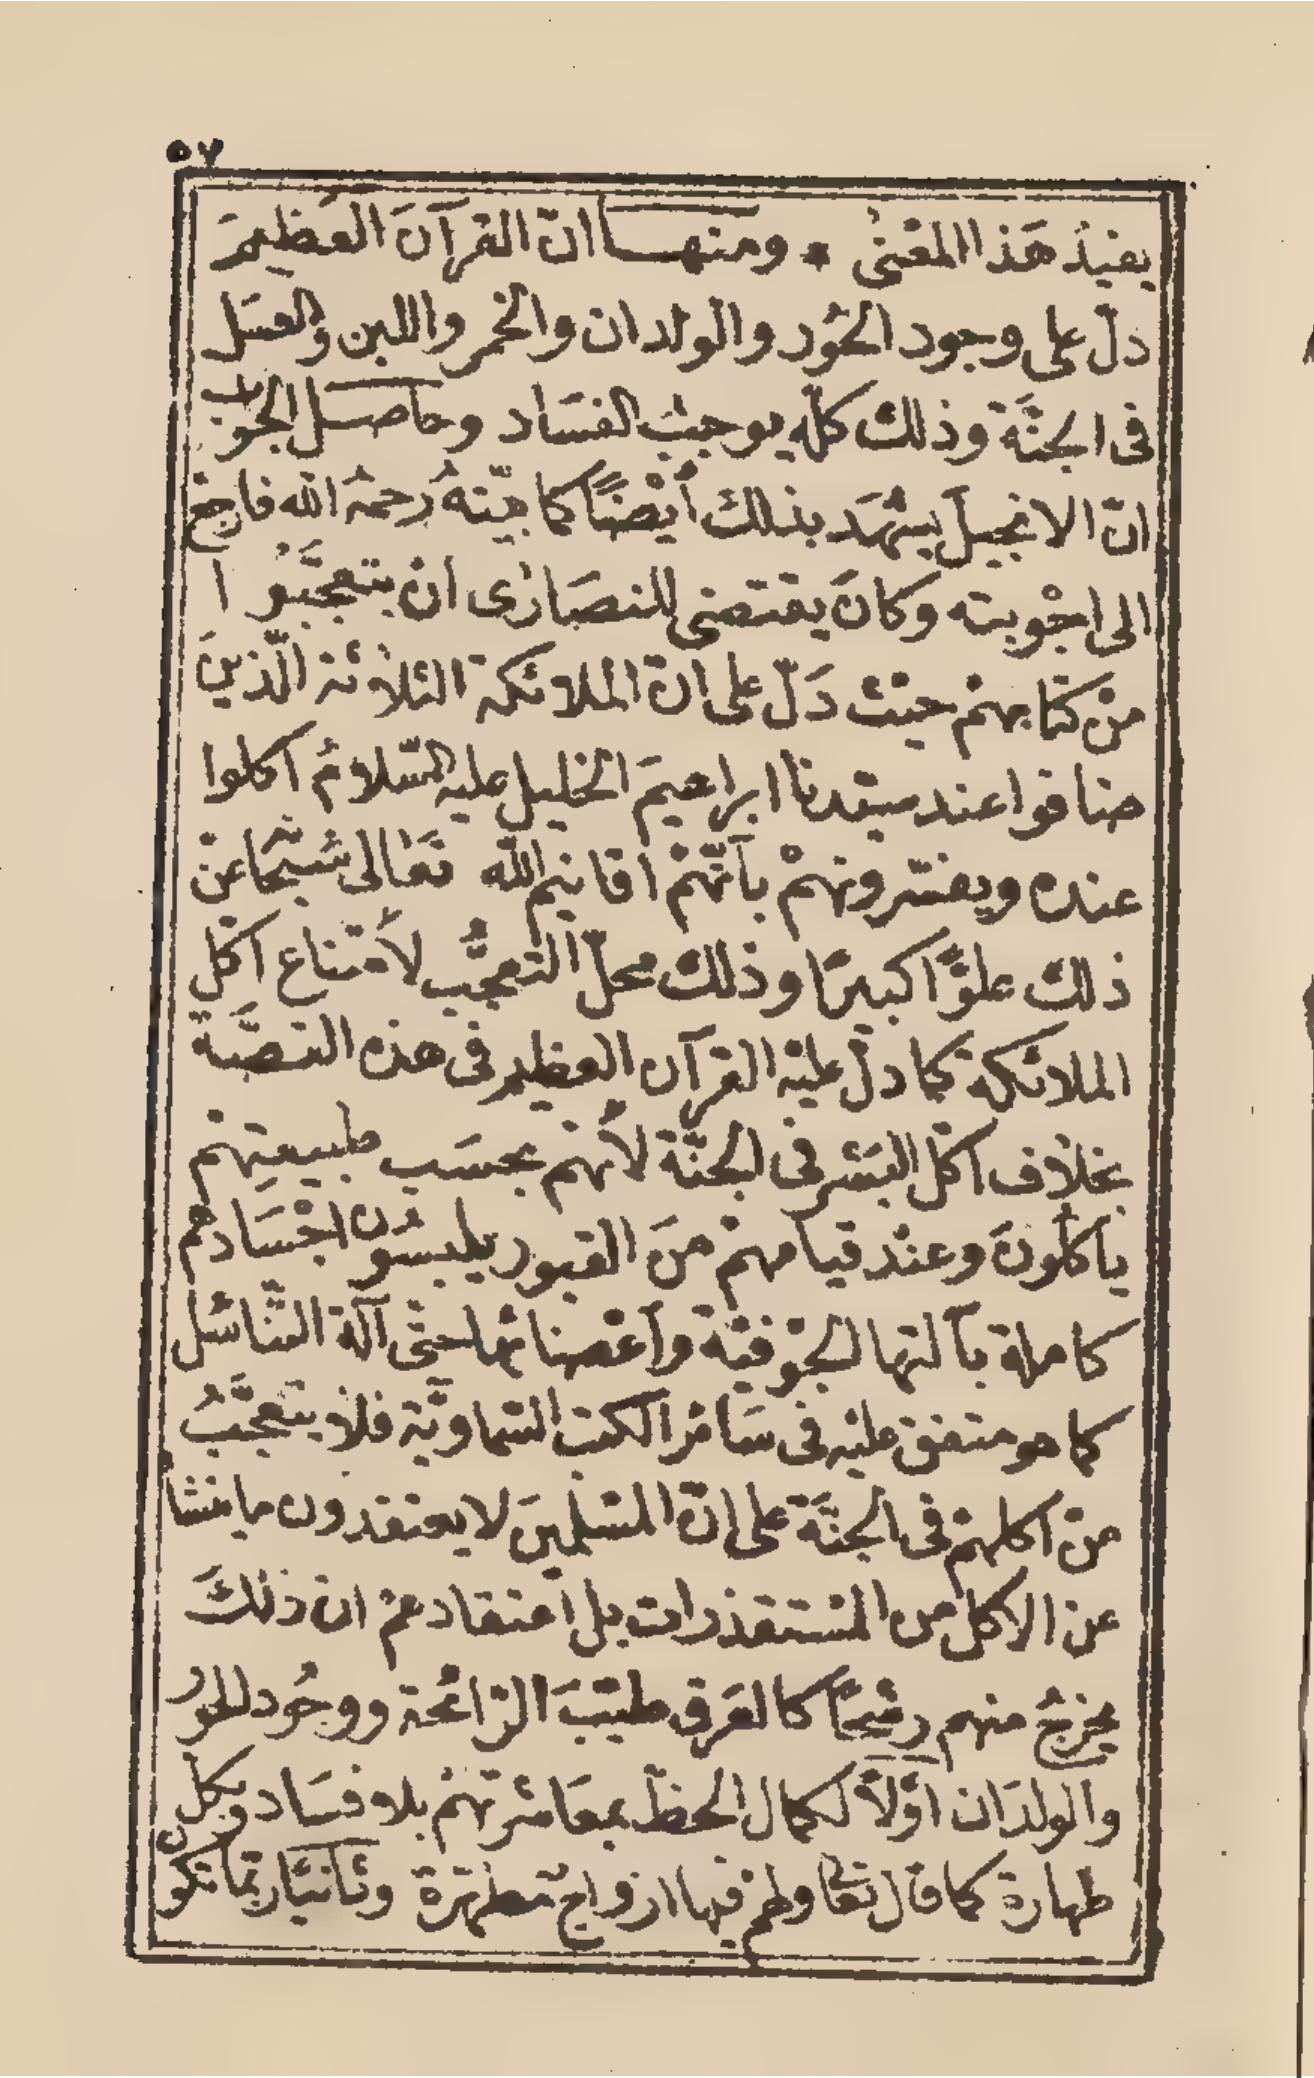 ٥٧
يفيدُ هَذا المعْنى * ومنهـا انّ القرآنَ العَظيمَ
دلّ على وجود الحُور والولدان والخمر واللبن والعسَل
فى الجنَّة وذلك كلّه يوجبُ الفسَاد وحاصل الجواب
انّ الانجيل يشهَد بذلك أيْضًا كما بيّنهُ رَحمهُ الله فارجع
الى اجْوبته وكانَ يقتضى للنصَارٰى انْ يتعجَّبُوا
منْ كتابهمْ حيثْ دَلّ على انّ الملائكة الثلاثة الّذينَ
ضافوا عند سيّدنا ابراهيمَ الخليل عليه السّلامُ اكلوا
عنده ويفسّرونهمْ بأنّهمْ اقانيم الله تعَالى شيئًا عنْ
ذلك علوًّا كبيرًا وذلك محلّ التعجُّب لأمتناع اكل
الملائكة كما دلّ عليْه القرآن العظيم فى هذه القصَّة
بخلاف اكْل البَشر فى الجنَّة لأنهم بحسَب طبيعتِهمْ
يأكلُونَ وعنْد قيامهمْ منَ القبور يلبسُون اجْسَادهم
كاملة بآلتها الجوْفيّة وأعْضائها حتّى آلة التَّناسُل
كما هو متفق عليْه فى سَائر الكتب السّماويّة فلا يتعجَّبُ
منْ اكلهمْ فى الجنَّة على انّ المسْلمينَ لا يعتقدون ما ينشا
عن الاكل من المسْتقذرات بل اعتقادهمْ ان ذلكَ
يخرجُ منهم رشْحًا كالعَرق طيّبَ الرّائحة ووجُود الحور
والولدَان اوّلاً لكمال الحظّ بمعَاشرتهمْ بلا فسَاد وبكل
طهارة كما قال تعالى ولهمْ فيها ازواجٌ مطهّرة وثانيًا ربّما تكون